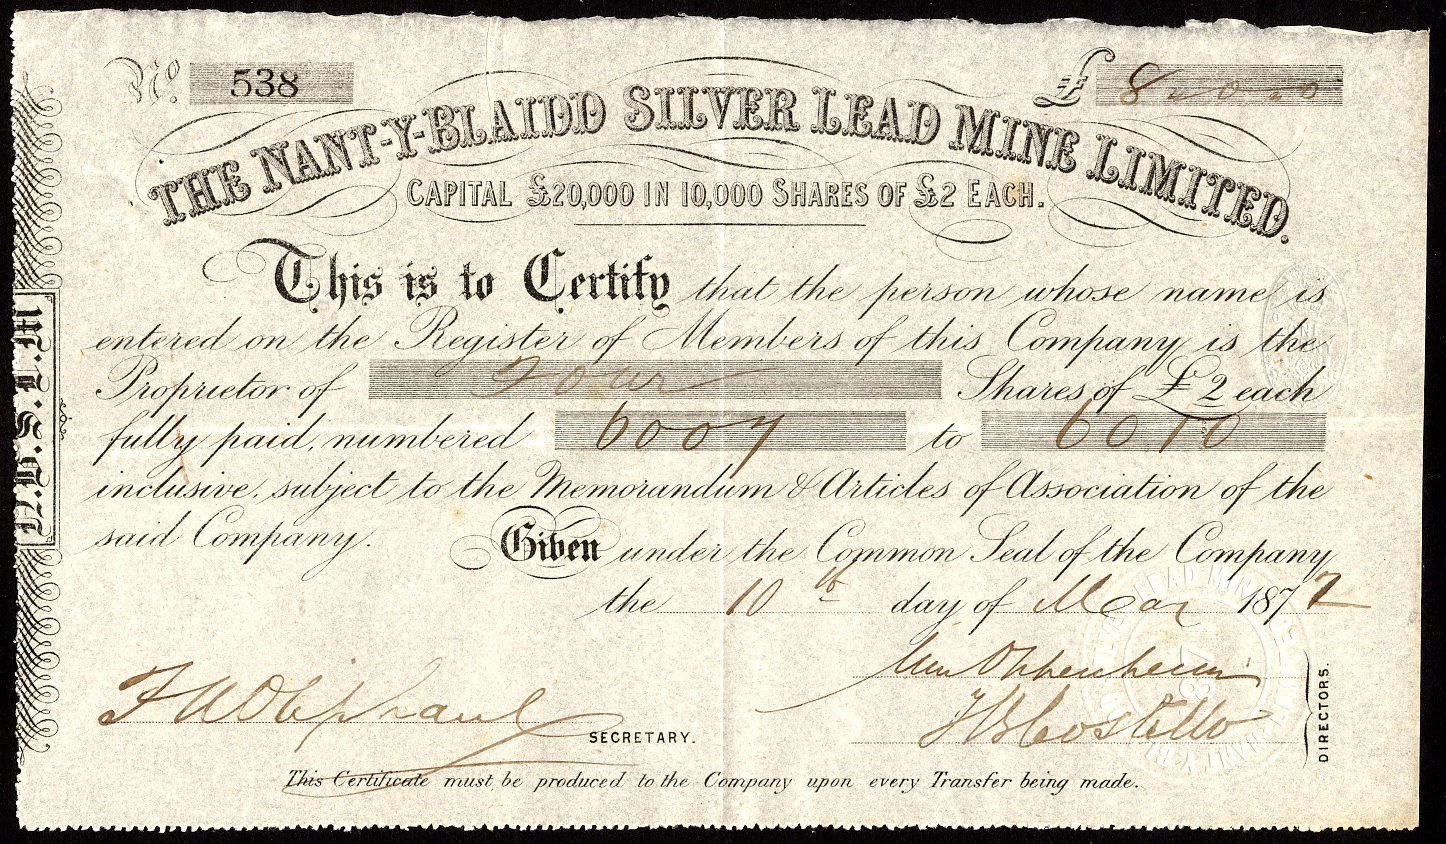 No. 538 £ 8 „ 0 „ 0
THE NANT-Y-BLAIDD SILVER LEAD MINE LIMITED.
CAPITAL £20,000 IN 10,000 SHARES OF £2 EACH.
This is to Certify that the person whose name is
entered on the Register of Members of this Company is the
Proprietor of Four Shares of £2 each
fully paid, numbered 6007 to 6010
inclusive, subject to the Memorandum & Articles of Association of the
said Company. Given under the Common Seal of the Company
the 10th day of Mar 1872
Wm Oppenheim
F W Oliphant SECRETARY.
Costello
DIRECTORS.
This Certificate must be produced to the Company upon every Transfer being made.
N.B.S.L.M
LEAD MINE